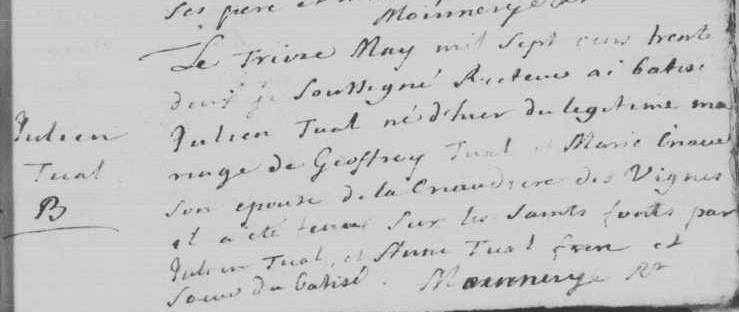 ses pere et
Moinnerye Rr
Le treize May mil sept cens trente
deux je soussigné Recteur ai batisé
Julien Tual né d'hier du legitime ma
riage de Geoffroy Tual et Marie
son epouse de la des Vignes
et a été tenu sur les saints fonts par
Julien Tual, et Anne Tual frere et
soeur du batisé. Moinnerye Rr
Julien
Tual
B